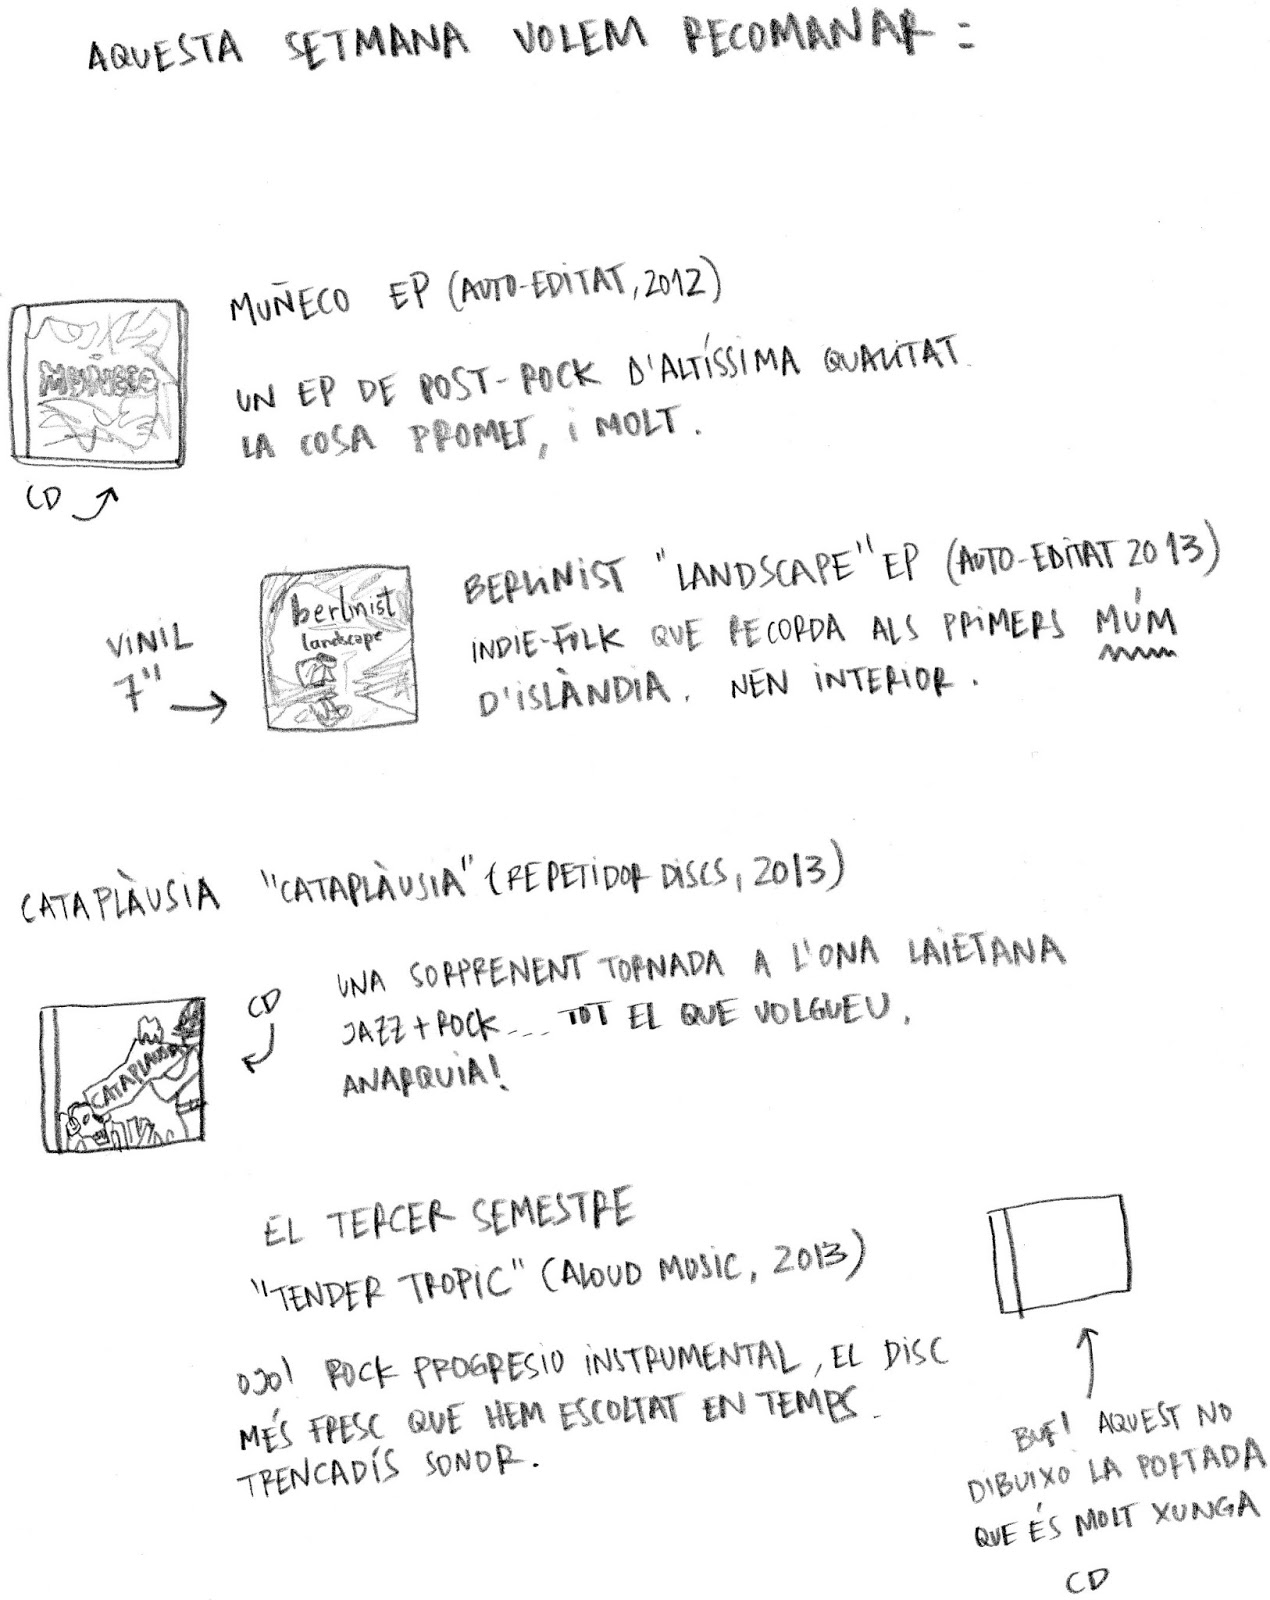 AQUESTA SETMANA VOLEM RECOMANAR :
MUÑECO EP (AUTO-EDITAT, 2012)
UN EP DE POST-ROCK D'ALTÍSSIMA QUALITAT.
LA COSA PROMET, i MOLT.
MUÑECO
CD
BERLINIST "LANDSCAPE" EP (AUTO-EDITAT 2013)
INDIE-FOLK QUE RECORDA ALS PRIMERS MÚM
D'ISLÀNDIA. NEN INTERIOR.
VINIL
7"
berlinist
landscape
CATAPLÀUSIA "CATAPLÀUSIA" (REPETIDOR DISCS, 2013)
UNA SORPRENENT TORNADA A L'ONA LAIETANA
JAZZ + ROCK... TOT EL QUE VOLGUEU.
ANARQUIA!
CD
CATAPLAUSIA
EL TERCER SEMESTRE
"TENDER TROPIC" (ALOUD MUSIC, 2013)
OJO! ROCK PROGRESIO INSTRUMENTAL, EL DISC
MÉS FRESC QUE HEM ESCOLTAT EN TEMPS.
TRENCADÍS SONOR.
BUF! AQUEST NO
DIBUIXO LA PORTADA
QUE ÉS MOLT XUNGA
CD